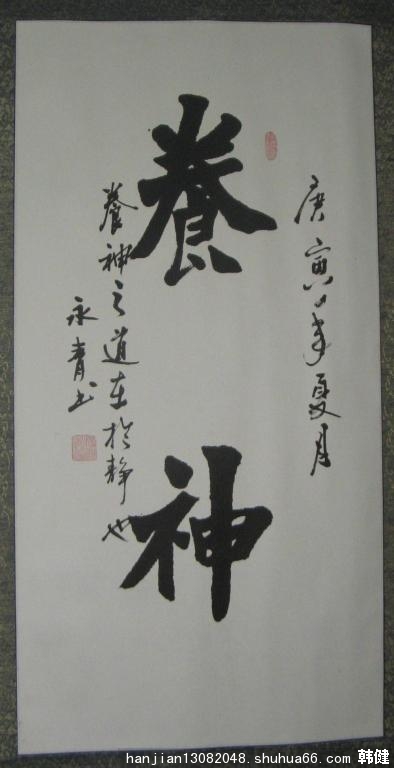 庚寅年夏月
養神
養神之道在於静也
永青书
hanjian13082048.shuhua66.com 韩健